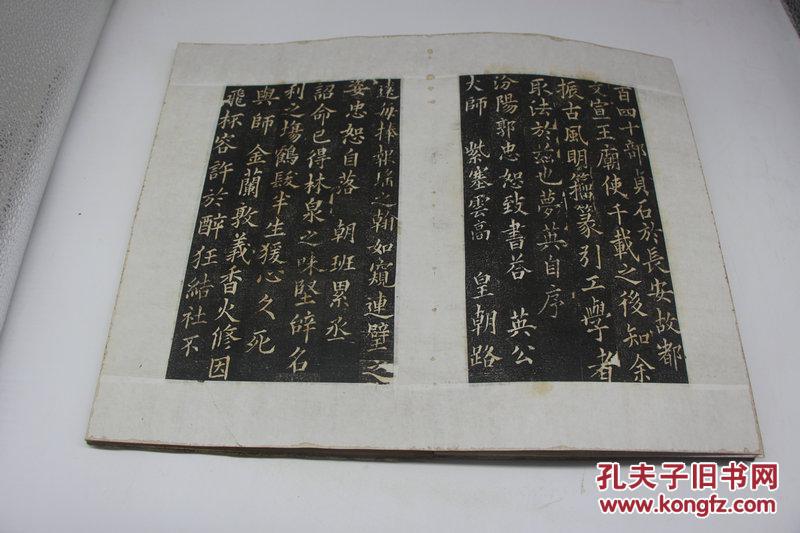 百四十部貞石於長安故都
文宣王廟使千載之後知余
振古風明籀篆引工學者
取法於茲也夢英自序
汾陽郭忠恕致書荅 英公
大師 紫塞雲高 皇朝路
捧 之翰如窺連璧之
姿忠恕自落 朝班累丞
詔命已得林泉之味堅辞名
利之場鶴髮半生猨心久死
與師 金蘭敦義香火修因
飛杯容許於醉狂結社不
孔夫子旧书网
www.kongfz.com